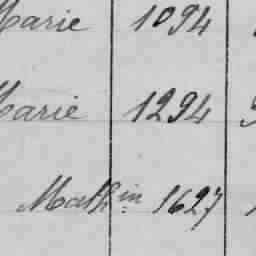 Marie 1094
Marie 1294
Math in 1627